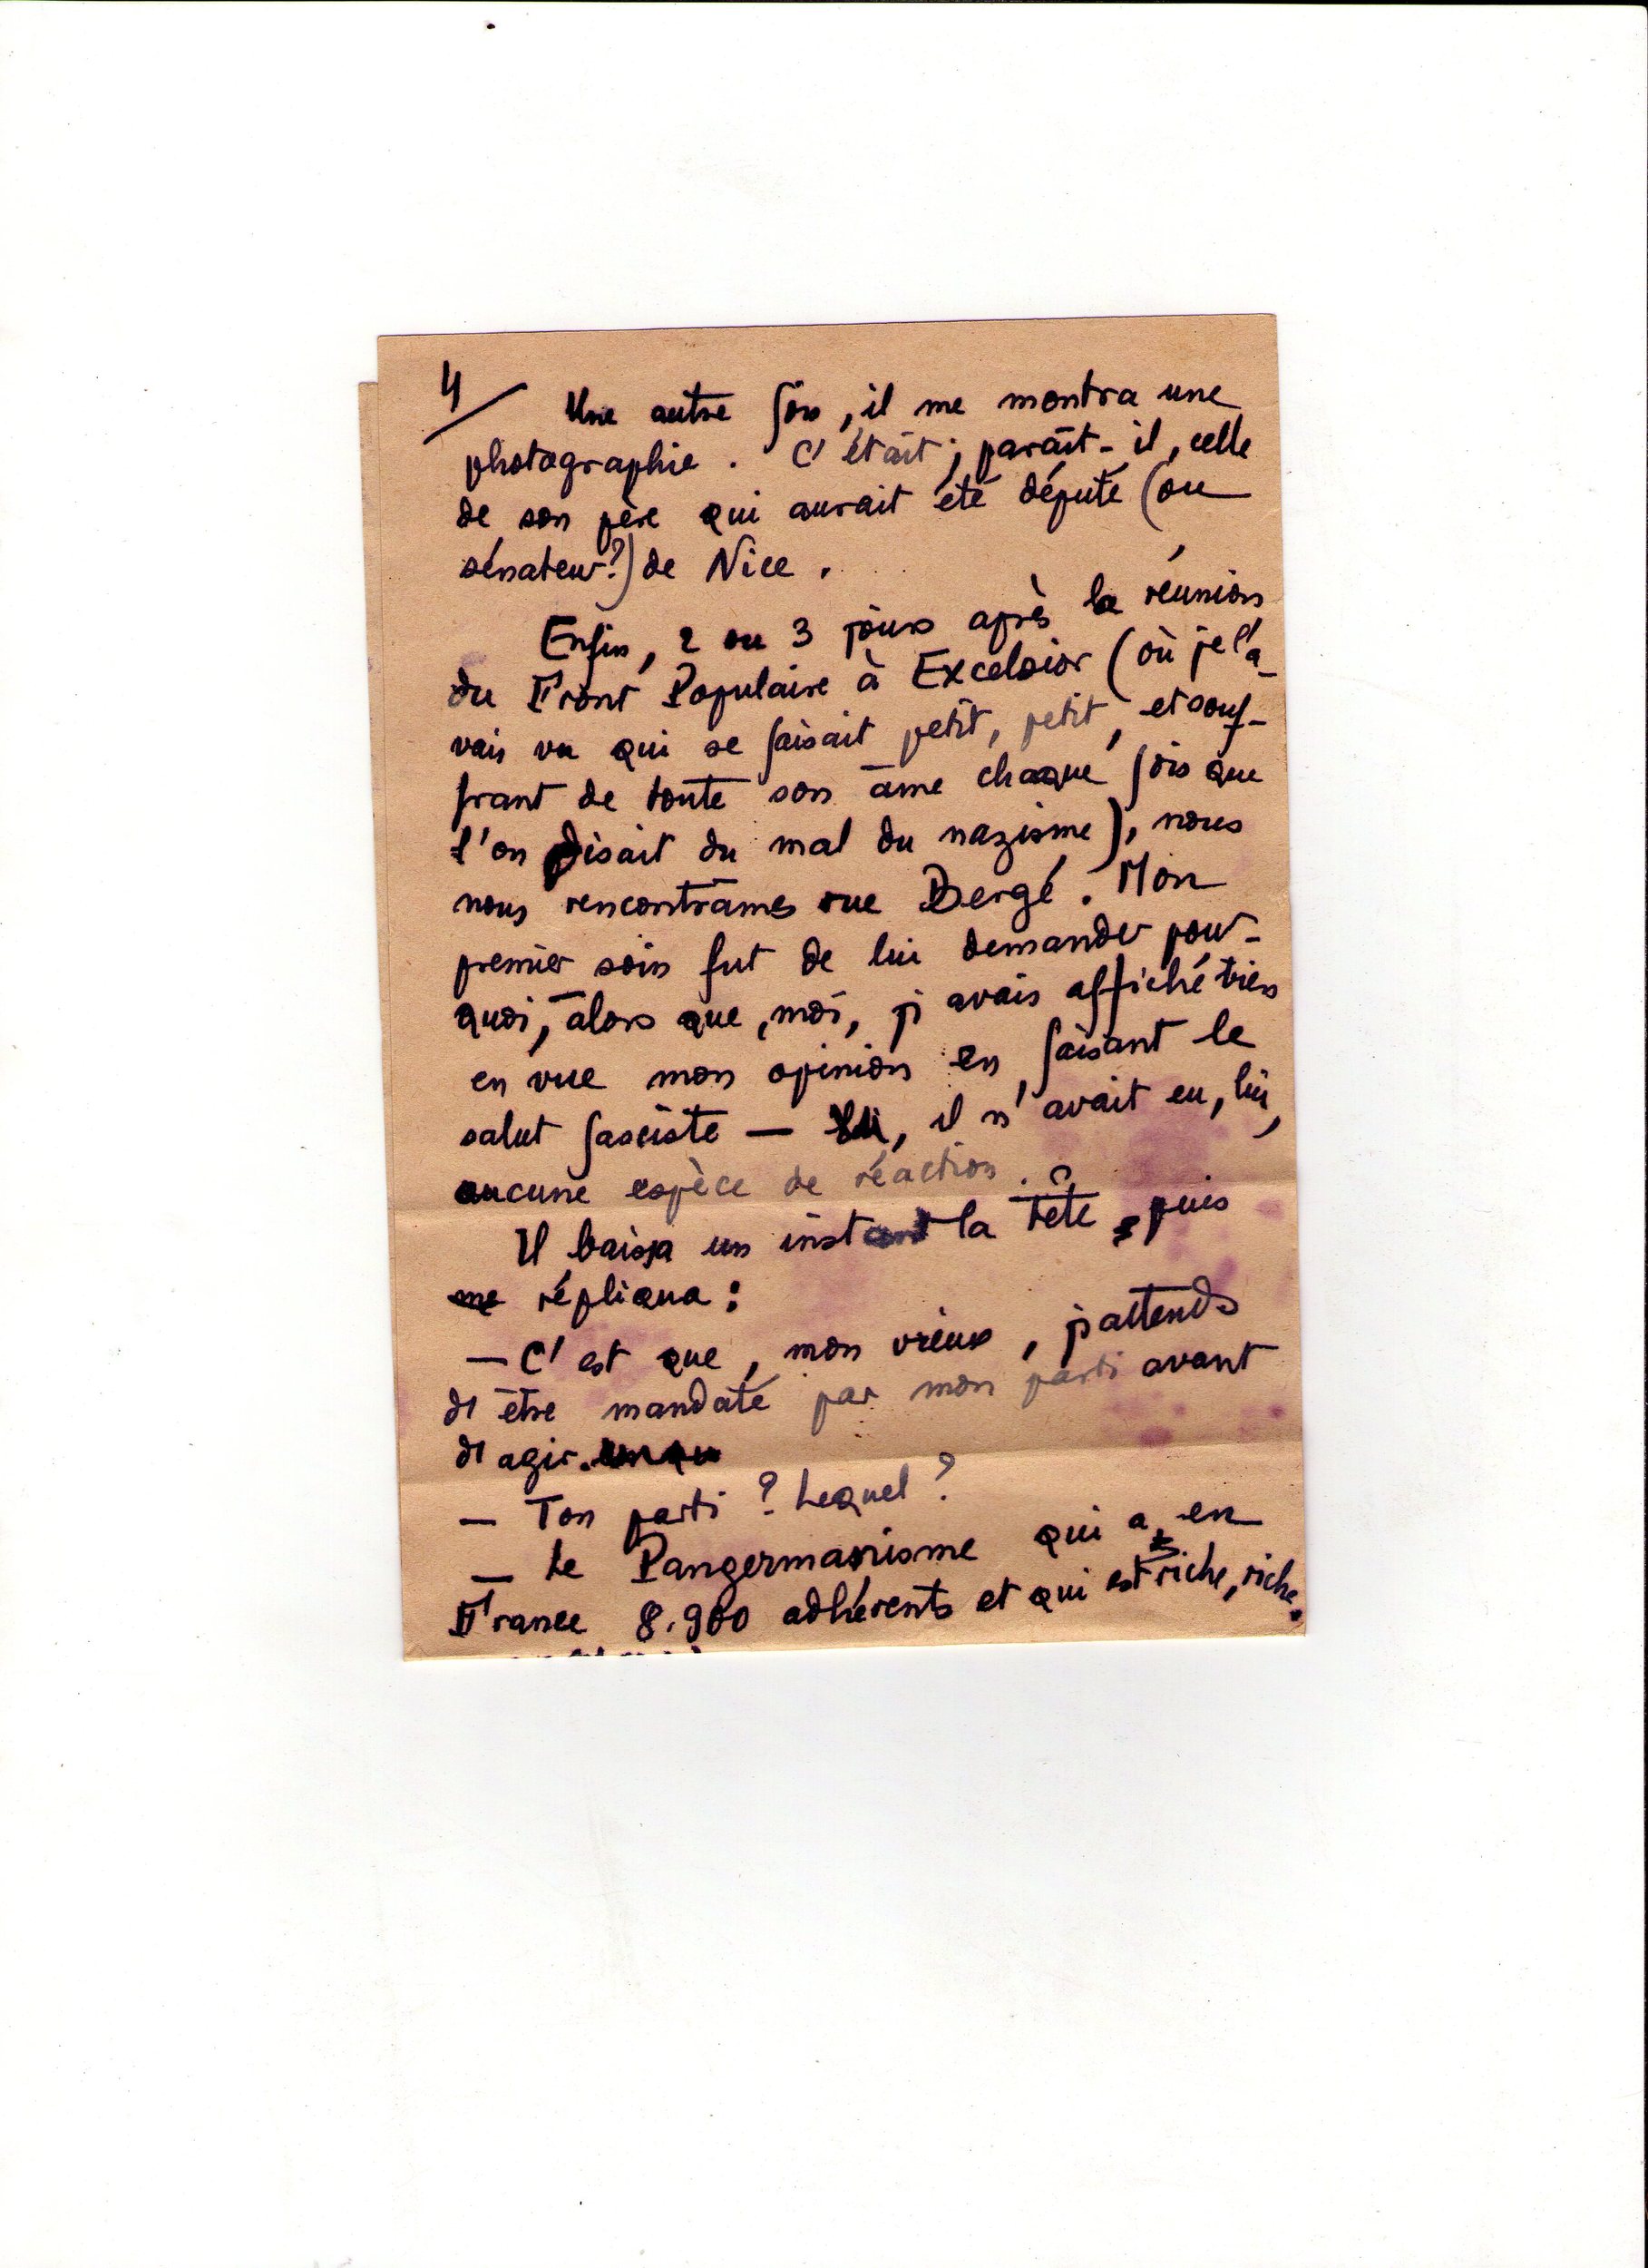 4/ Une autre fois, il me montra une
photographie. C'était, paraît-il, celle
de son père qui aurait été député (ou
sénateur?) de Nice.
Enfin, 2 ou 3 jours après la réunion
du Front Populaire à Excelsior (où je l'a-
vais vu qui se faisait petit, petit, et souf-
frant de toute son âme chaque fois que
l'on disait du mal du nazisme), nous
nous rencontrâmes rue Bergé. Mon
premier soin fut de lui demander pour-
quoi, alors que, moi, j'avais affiché bien
en vue mon opinion en faisant le
salut fasciste — il n'avait eu, lui,
aucune espèce de réaction.
Il baissa un instant la tête, puis
me répliqua :
— C'est que, mon vieux, j'attends
d'être mandaté par mon parti avant
d'agir.
— Ton parti ? Lequel ?
— Le Pangermanisme qui a, en
France 8.900 adhérents et qui est riche, riche.